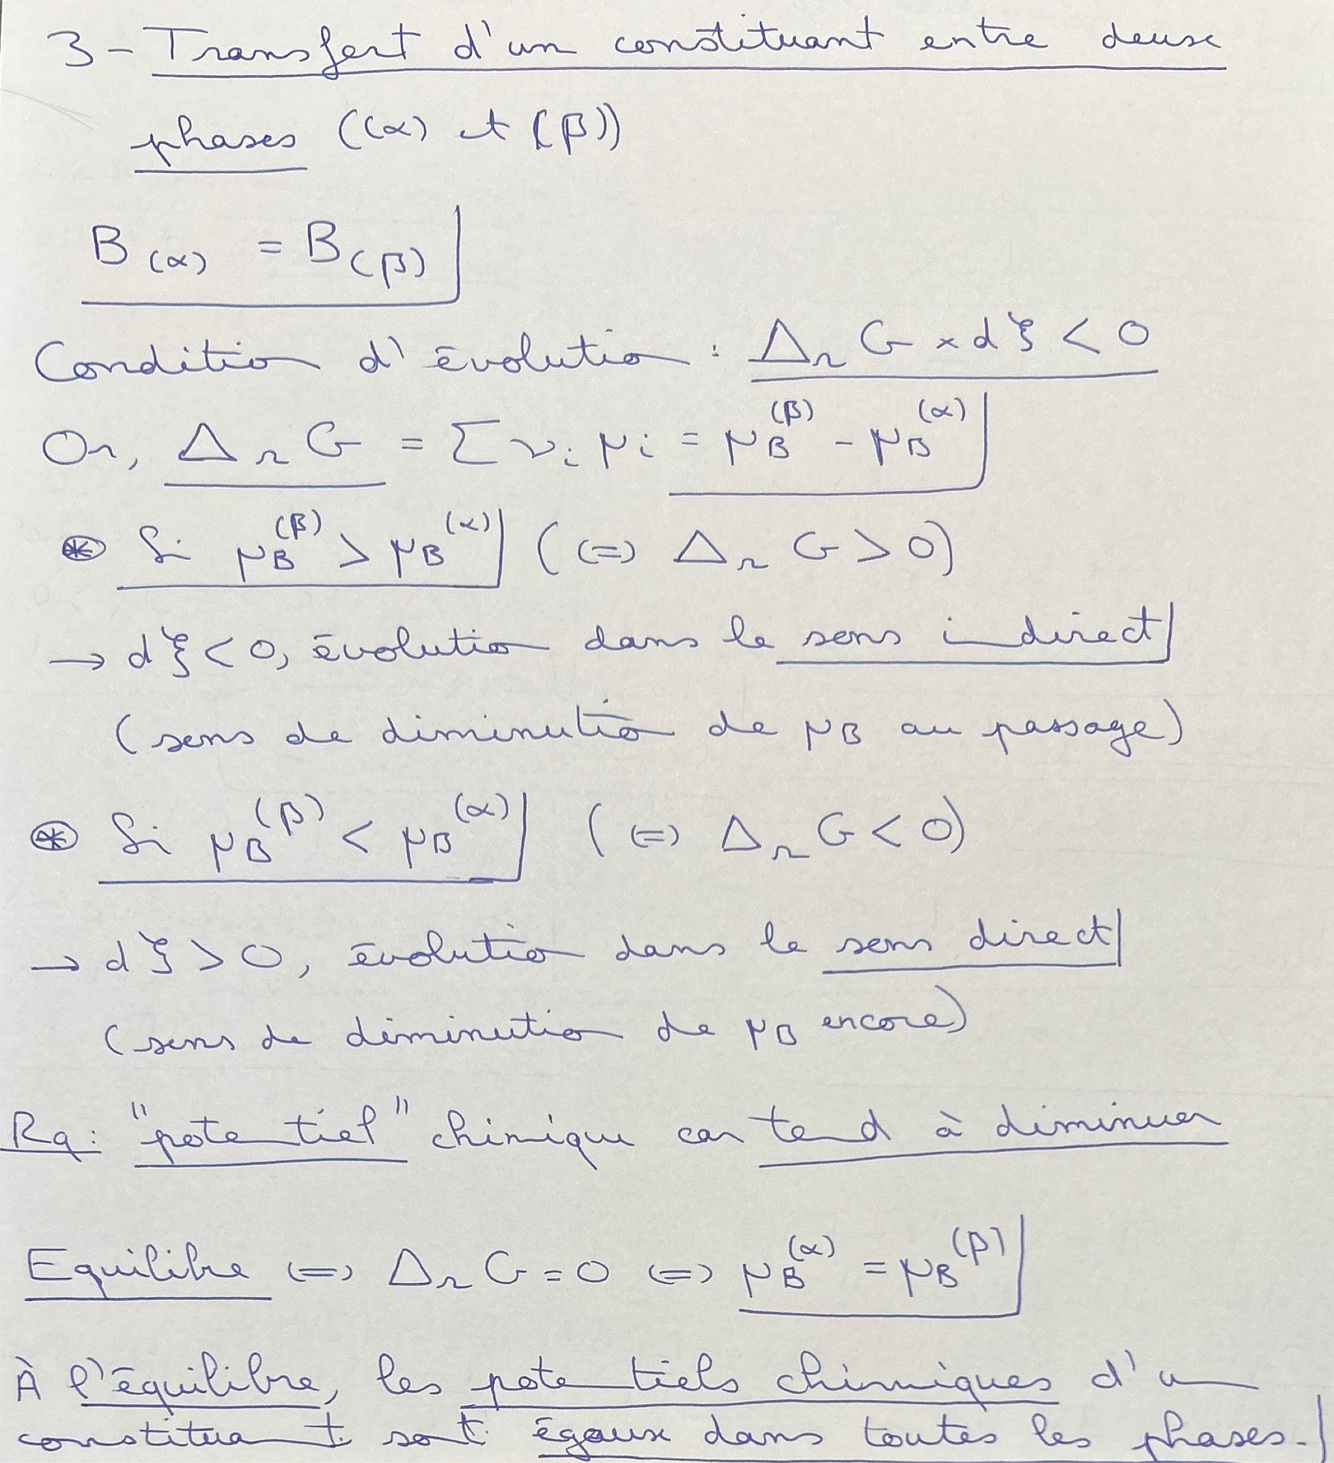 3 - Transfert d'un constituant entre deux
phases ((α) et (β))
B(α) = B(β)
Condition d'évolution : ΔrG × dξ < 0
Or, ΔrG = Σ νi μi = μB^(β) - μB^(α)
⊛ Si μB^(β) > μB^(α) (⇔ ΔrG > 0)
→ dξ < 0, évolution dans le sens indirect
(sens de diminution de μB au passage)
⊛ Si μB^(β) < μB^(α) (⇔ ΔrG < 0)
→ dξ > 0, évolution dans le sens direct
(sens de diminution de μB encore)
Rq : "potentiel" chimique car tend à diminuer
Equilibre ⇔ ΔrG = 0 ⇔ μB^(α) = μB^(β)
À l'équilibre, les potentiels chimiques d'un
constituant sont égaux dans toutes les phases.